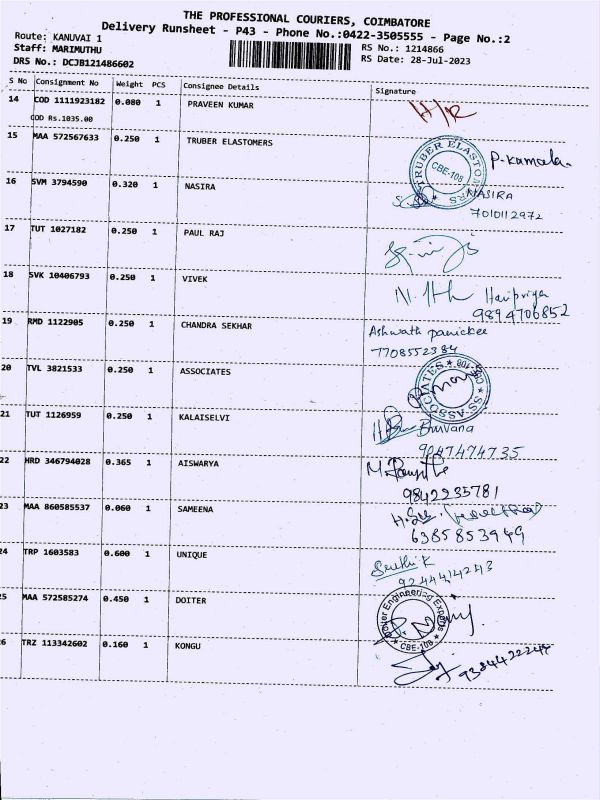 THE PROFESSIONAL COURIERS, COIMBATORE
Delivery Runsheet - P43 - Phone No.:0422-3505555 - Page No.:2
Route: KANUVAI 1
Staff: MARIMUTHU
DRS No.: DCJB121486602
RS No.: 1214866
RS Date: 28-Jul-2023
S No Consignment No Weight PCS Consignee Details Signature
14 COD 1111923182 0.080 1 PRAVEEN KUMAR H/R
COD Rs.1035.00
15 MAA 572567633 0.250 1 TRUBER ELASTOMERS TRUBER ELASTOMERS CBE-108 P. Kamala.
16 SVM 3794590 0.320 1 NASIRA NASIRA
7010112972
17 TUT 1027182 0.250 1 PAUL RAJ
18 SVK 10406793 0.250 1 VIVEK Haripriya
9894706852
19 RMD 1122905 0.250 1 CHANDRA SEKHAR Ashwath panickee
7708552384
20 TVL 3821533 0.250 1 ASSOCIATES SS ASSOCIATES CBE-108
21 TUT 1126959 0.250 1 KALAISELVI Buvana
9047474735
22 HRD 346794028 0.365 1 AISWARYA
9842235781
23 MAA 860585537 0.060 1 SAMEENA
6385853949
24 TRP 1603583 0.600 1 UNIQUE
9244414243
25 MAA 572585274 0.450 1 DOITER Engineering Experts CBE-108
26 TRZ 113342602 0.160 1 KONGU 9384422244